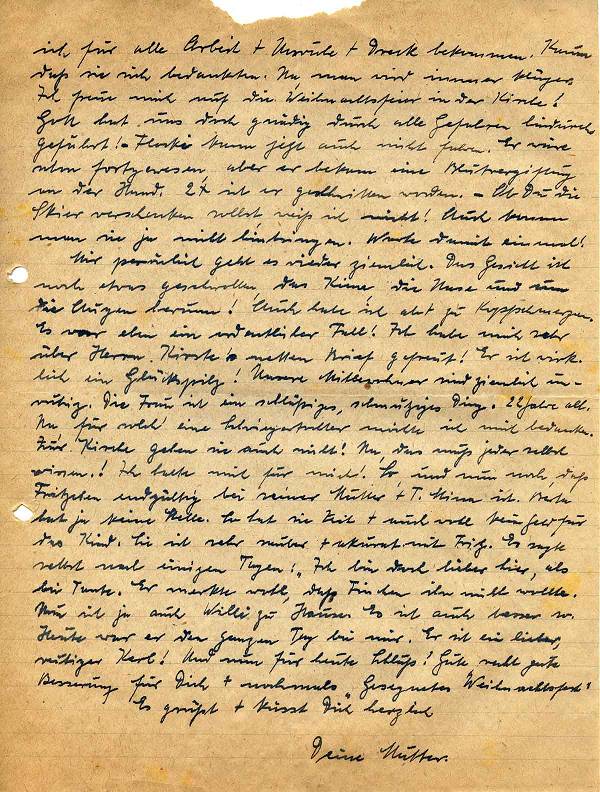 ich für alle Arbeit + Unruhe + Dreck bekommen. Kaum
daß sie sich bedankten. Na, man wird immer klüger.
Ich freue mich auf die Weihnachtsfeier in der Kirche!
Gott hat uns doch gnädig durch alle Gefahren hindurch
geführt! – kann jetzt auch nicht fahren. Er wäre
schon fortgewesen, aber er bekam eine Blutvergiftung
an der Hand. 2x ist er geschnitten worden. – Ob Du die
Skier verschenken sollst weiß ich nicht! Auch kann
man sie ja nicht hinbringen. Warte damit einmal!
Mir persönlich geht es wieder ziemlich. Das Gesicht ist
noch etwas geschwollen, das Kinn, die Nase und um
die Augen herum! Auch habe ich oft so Kopfschmerzen.
Es war eben ein ordentlicher Fall! Ich habe mich sehr
über Herrn netten Brief gefreut! Er ist wirk-
lich ein Glückspilz! Unsere Mitbewohner sind ziemlich un-
ruhig. Die Frau ist ein schmutziges Ding. 22 Jahre alt.
Na für solch eine Schwiegertochter möchte ich mich bedanken.
Zur Kirche gehen sie auch nicht! Na, das muß jeder selbst
wissen.! Ich halte mich für mich! So, und nun noch, daß
Fritzchen endgültig bei seiner Mutter + T. ist.
hat ja keine Stelle. So hat sie Zeit + auch wohl kein Geld für
das Kind. Sie ist sehr sauber + akurat mit Fritz. Er sagte
selbst nach einigen Tagen: „Ich bin doch lieber hier, als
bei Tante. Er merkte wohl, daß ihn nicht wollte.
Nun ist ja auch Willi zu Hause. Es ist auch besser so.
Heute war er den ganzen Tag bei mir. Er ist ein lieber,
ruhiger Kerl! Und nun für heute Schluß! Gute, recht gute
Besserung für Dich + nochmals „Gesegnetes Weihnachtsfest“
Es grüßt + küsst Dich herzlich
Deine Mutter.